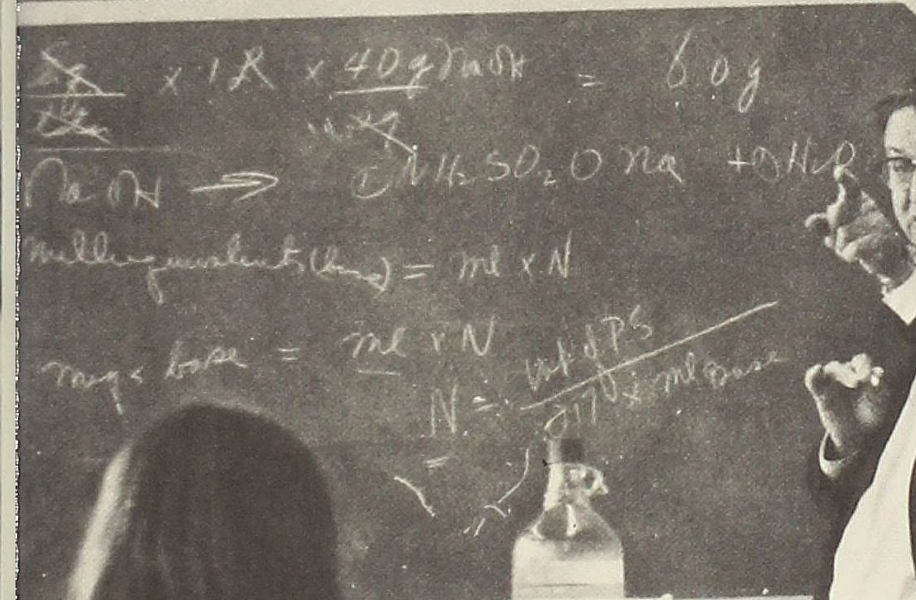 x 1 l x 40g NaOH = 6.0g
NaOH → NH₂SO₂ONa + H₂O
milliequivalents (base) = ml x N
meqs base = ml x N
N = wt of PS / x ml base
=